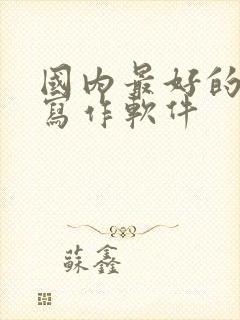 國內最好的
寫作軟件
蘇鑫